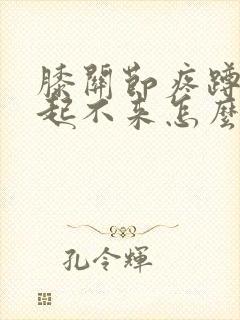 膝關節疼蹲
起不来怎麼
孔令輝